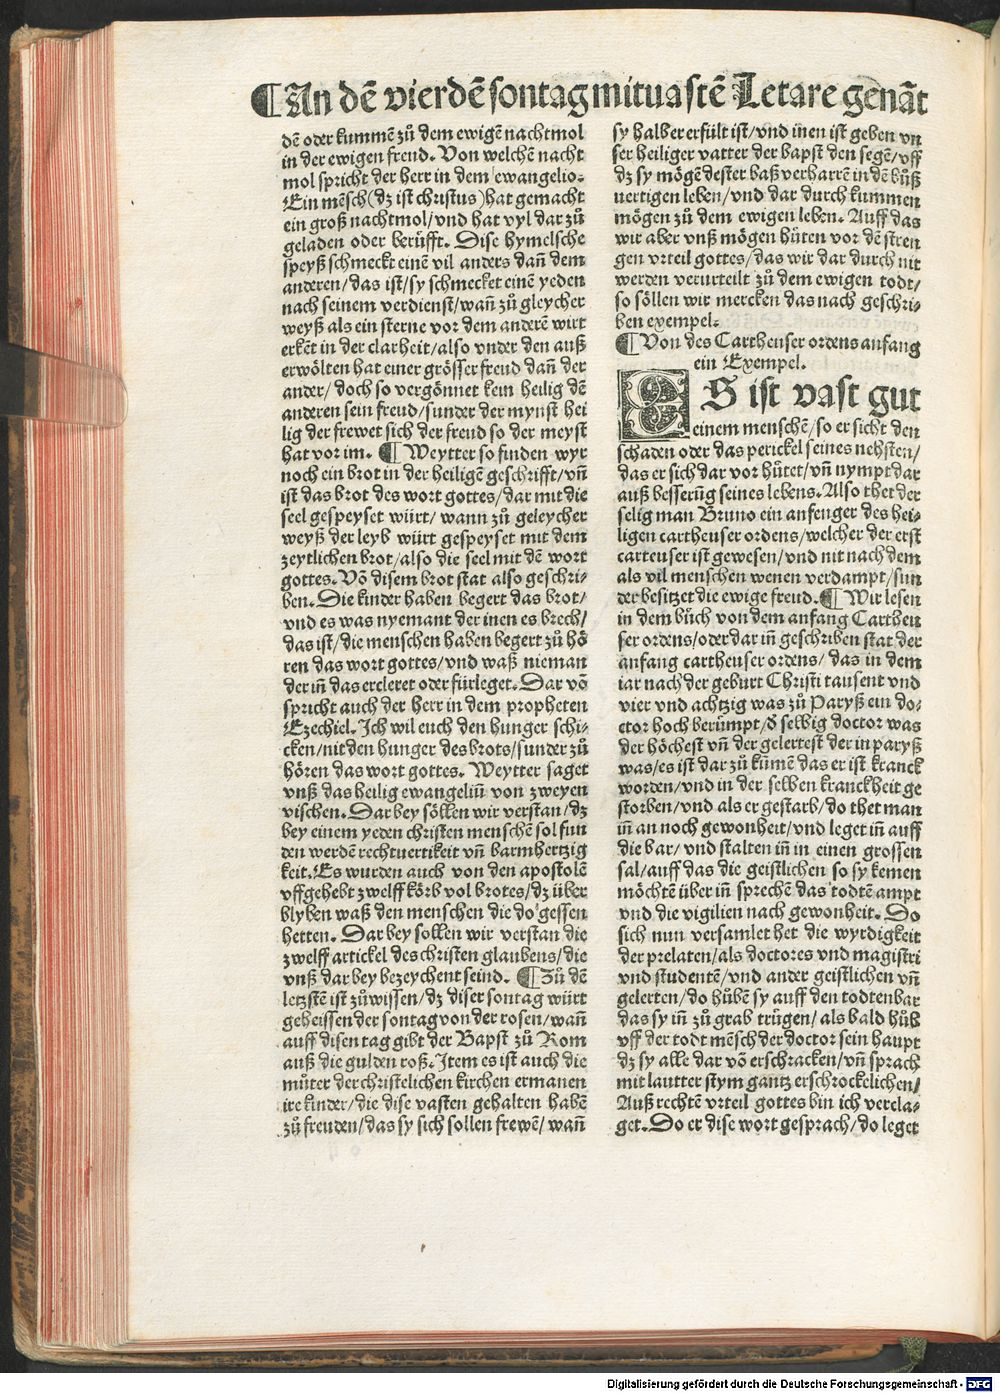 ¶ An dẽ vierdẽ sontag mituastẽ Letare genãt
dẽ oder kummẽ zů dem ewigẽ nachtmol
in der ewigen freud. Von welchẽ nacht
mol spricht der herr in dem ewangelio.
Ein mẽsch (dz ist christus) hat gemacht
ein groß nachtmol/ vnd hat vyl dar zů
geladen oder berüfft. Dise hymelsche
speyß schmeckt einẽ vil anders dañ dem
anderen/ das ist/ sy schmecket einẽ yeden
nach seinem verdienst/ wañ zů gleycher
weyß als ein sterne vor dem anderẽ wirt
erkẽt in der clarheit/ also vnder den auß
erwölten hat einer grösser freud dañ der
ander/ doch so vergönnet kein heilig dẽ
anderen sein freud/ sunder der mynst hei
lig der frewet sich der freud so der meyst
hat vor im. ¶ Weytter so finden wyr
noch ein brot in der heiligẽ geschrifft/ vñ
ist das brot des wort gottes/ dar mit die
seel gespeyset würt/ wann zů geleycher
weyß der leyb würt gespeyset mit dem
zeytlichen brot/ also die seel mit dẽ wort
gottes. Võ disem brot stat also geschri-
ben. Die kinder haben begert das brot/
vnd es was nyemant der inen es brech/
das ist/ die menschen haben begert zů hö
ren das wort gottes/ vnd waß nieman
der iñ das ercleret oder fürleget. Dar võ
spricht auch der herr in dem propheten
Ezechiel. Ich wil euch den hunger schi-
cken/ nit den hunger des brots/ sunder zů
hören das wort gottes. Weytter saget
vnß das heilig ewangeliũ von zweyen
vischen. Dar bey söllen wir verstan/ dz
bey einem yeden christen menschẽ sol fun
den werdẽ rechtuertikeit vñ barmhertzig
keit. Es wurden auch von den apostolẽ
vffgehebt zwelff körb vol brotes/ dz über
blyben waß den menschen die do gessen
hetten. Dar bey sollen wir verstan die
zwelff artickel des christen glaubens/ die
vnß dar bey bezeychent seind. ¶ Zů dẽ
letzstẽ ist zů wissen/ dz diser sontag würt
geheissen der sontag von der rosen/ wañ
auff disen tag gibt der Bapst zů Rom
auß die gulden roß. Item es ist auch die
můter der christelichen kirchen ermanen
ire kinder/ die dise vasten gehalten habẽ
zů freuden/ das sy sich sollen frewẽ/ wañ
sy halber erfült ist/ vnd inen ist geben vn
ser heiliger vatter der bapst den segẽ/ vff
dz sy mögẽ dester baß verharrẽ in dẽ bůß
uertigen leben/ vnd dar durch kummen
mögen zů dem ewigen leben. Auff das
wir aber vnß mögen hüten vor dẽ stren
gen vrteil gottes/ das wir dar durch nit
werden verurteilt zů dem ewigen todt/
so söllen wir mercken das nach geschri-
ben exempel.
¶ Von des Cartheuser ordens anfang
ein Exempel.
ES ist vast gut
einem menschẽ/ so er sicht den
schaden oder das perickel seines nehsten/
das er sich dar vor hütet/ vñ nympt dar
auß besserũg seines lebens. Also thet der
selig man Bruno ein anfenger des hei-
ligen cartheuser ordens/ welcher der erst
carteuser ist gewesen/ vnd nit nach dem
als vil menschen wenen verdampt/ sun
der besitzet die ewige freud. ¶ Wir lesen
in dem bůch von dem anfang Cartheu
ser ordens/ oder dar iñ geschriben stat der
anfang cartheuser ordens/ das in dem
iar nach der geburt Christi tausent vnd
vier vnd achtzig was zů Paryß ein do-
ctor hoch berümpt/ d̕ selbig doctor was
der höchest vñ der gelertest der in paryß
was/ es ist dar zů kũmẽ das er ist kranck
worden/ vnd in der selben kranckheit ge
storben/ vnd als er gestarb/ do thet man
iñ an noch gewonheit/ vnd leget iñ auff
die bar/ vnd stalten iñ in einen grossen
sal/ auff das die geistlichen so sy kemen
möchtẽ über iñ sprechẽ das todtẽ ampt
vnd die vigilien nach gewonheit. Do
sich nun versamlet het die wyrdigkeit
der prelaten/ als doctores vnd magistri
vnd studentẽ/ vnd ander geistlichen vñ
gelerten/ do hübẽ sy auff den todtenbar
das sy iñ zů grab trügen/ als bald hůb
vff der todt mẽsch der doctor sein haupt
dz sy alle dar võ erschracken/ vñ sprach
mit lautter stym gantz erschrockelichen/
Auß rechtẽ vrteil gottes bin ich vercla-
get. Do er dise wort gesprach/ do leget
Digitalisierung gefördert durch die Deutsche Forschungsgemeinschaft - DFG